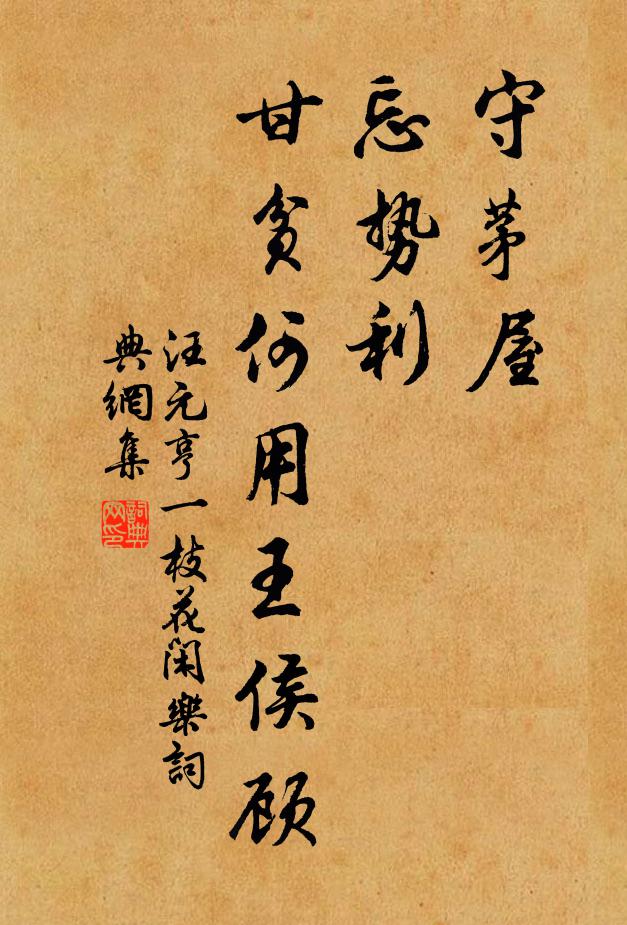 守茅屋
忘势利
甘贫何用王侯顾
汪元亨一枝花闲樂詞
典網集
詞典網印